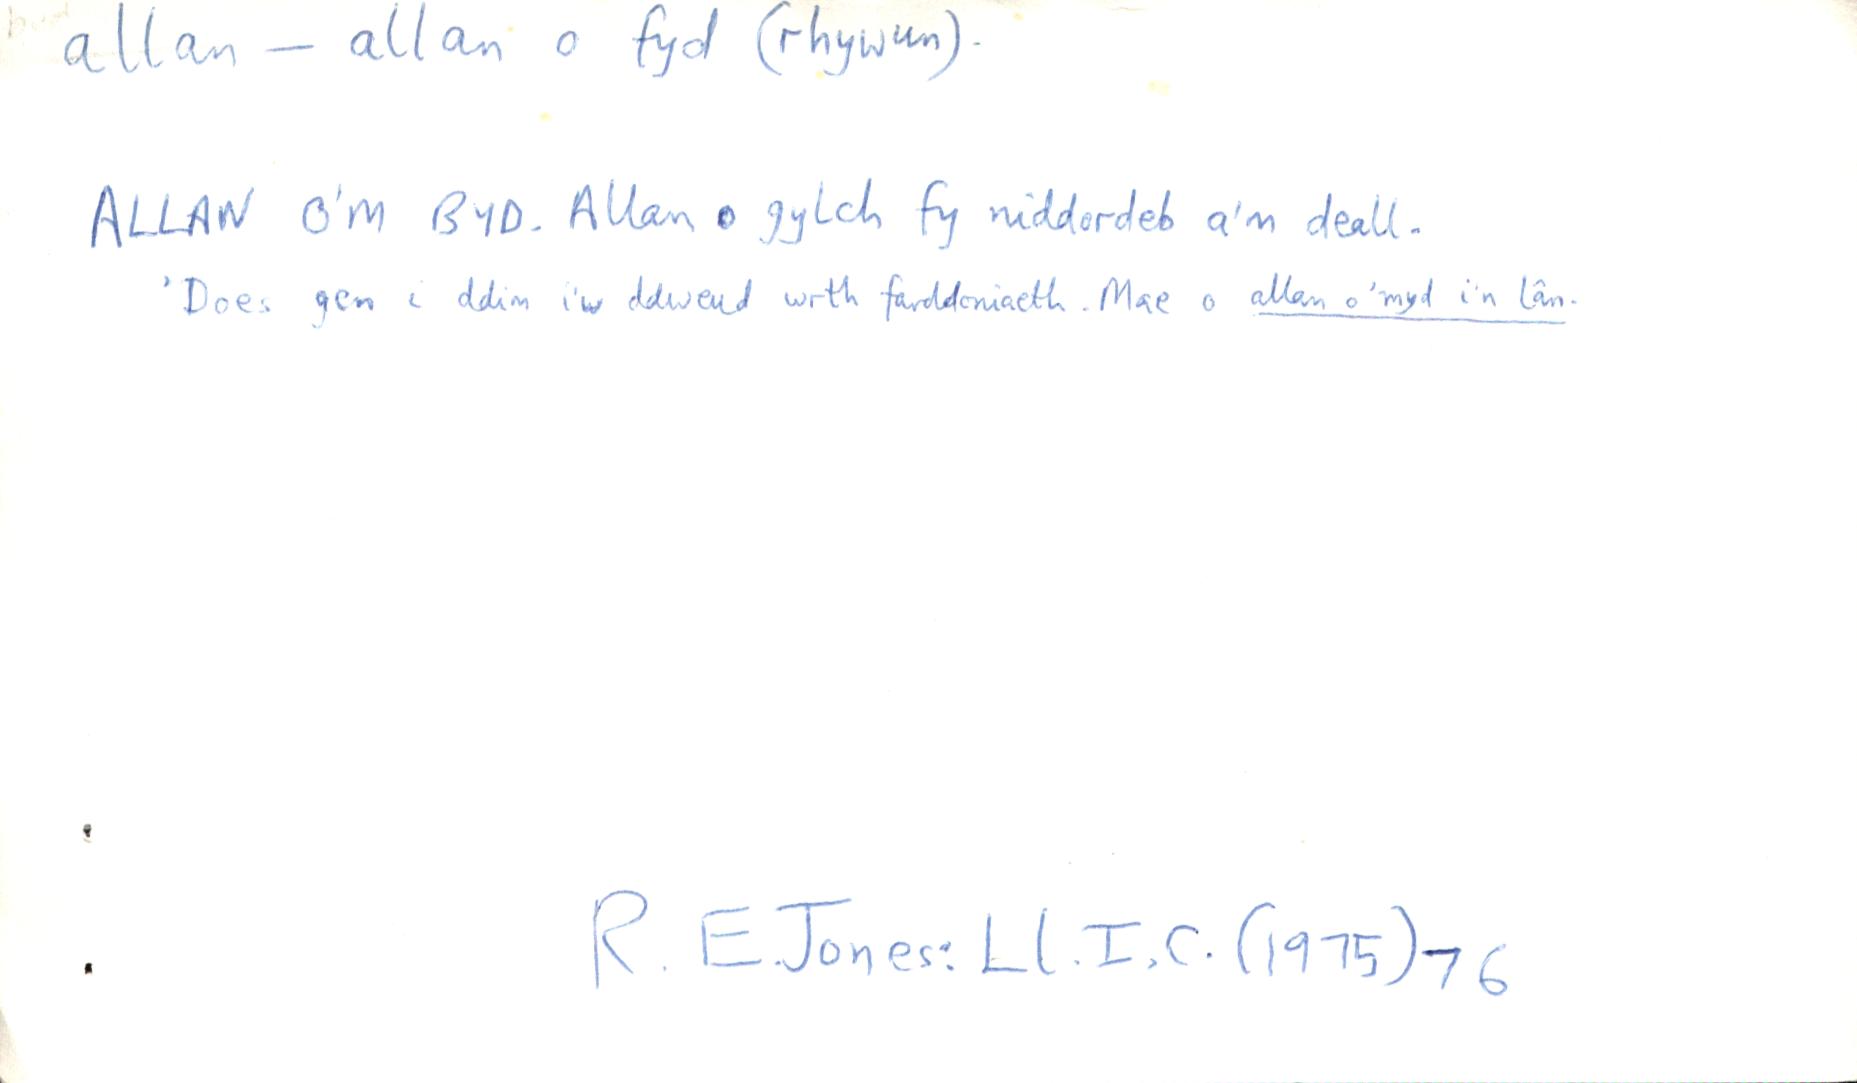 allan – allan o fyd (rhywun).
ALLAN O'M BYD. Allan o gylch fy niddordeb a'm deall.
'Does gen i ddim i'w ddweud wrth farddoniaeth. Mae o allan o'myd i'n lân.
R. E. Jones: Ll.I.C. (1975) 76